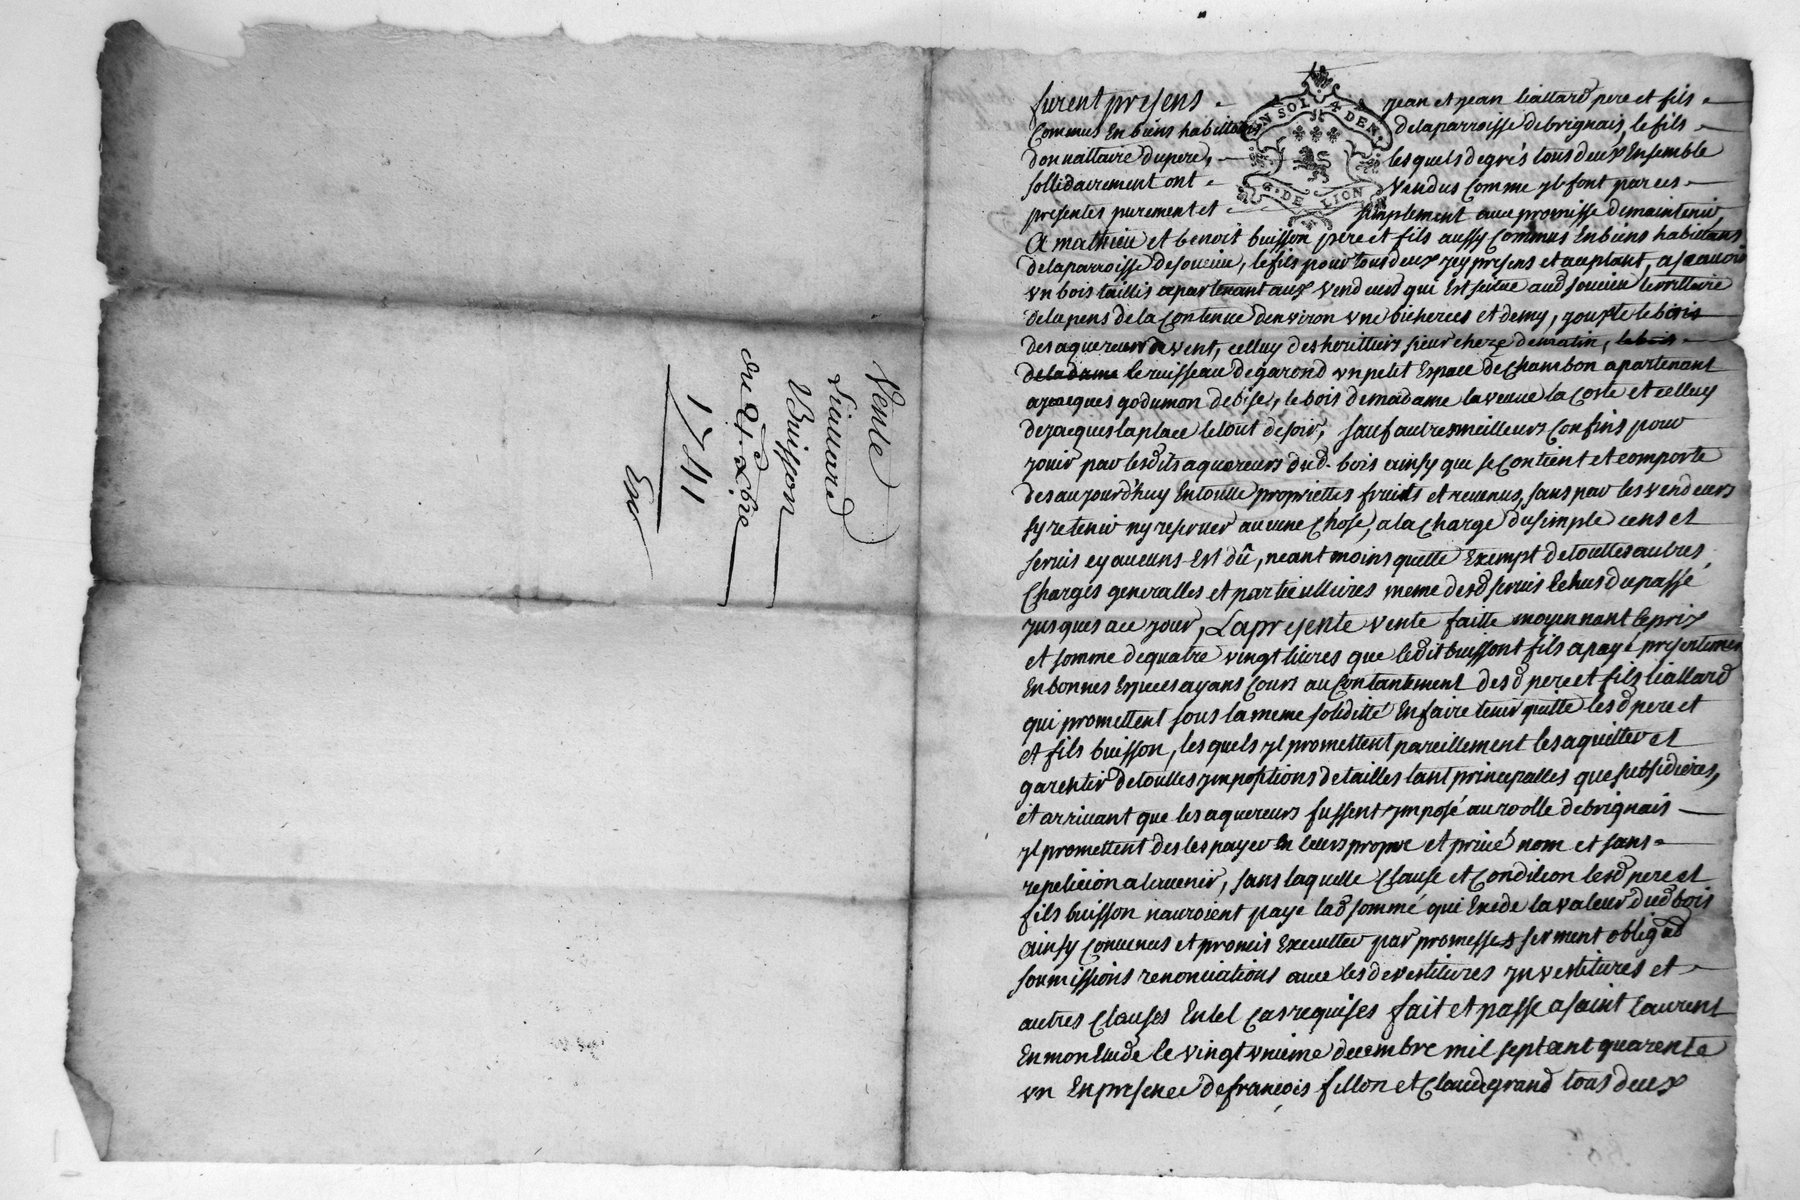 Vente
Liattard
Buisson
du 21.e Xbre
1741
Exp
UN SOL. 4 DEN.
G. DE LION
furent presens jean et jean liattard pere et fils
Commus En biens habittans de la parroisse de brignais, le fils
donnattaire du pere, lesquels de grés tous deux Ensemble
sollidairement ont vendus Comme yl font par ces
presentes purement et simplement avec promisse de maintenir,
A mathieu et benoit buisson pere et fils aussy Commus En biens habitans
de la parroisse de soucieu, le fils pour tous deux jcy presens et aceptant, a scavoir
vn bois taillis apartenant aux vendeurs qui Est scitué aud soucieu territtoire
de la pens de la Contenue denviron vne bicherees et demy, jouxte le bois
des aquereurs de vent, celluy des heritiers sieur cheze de matin, le bois
de la dame le ruisseau de garond vn petit Espace de Chambon apartenant
a jacques godumon de bise, le bois de madame la veuve la Coste et celluy
de jacques la place le tout de soir, sauf autres meilleurs Confins pour
jouir par lesdits aquereurs dud. bois ainsy que se Contient et comporte
des aujourdhuy En toutte propriettes fruits et revenus, sans par les vendeurs
sy retenir ny reserver aucune Chose, a la Charge du simple cens et
servis sy aucuns Est dû, neant moins quitte Exempt de touttes autres
Charges generalles et particullieres meme desd servis Echus du passé
jusques a ce jour, La presente vente faitte moyennant le prix
et somme de quatre vingt livres que ledit buissont fils a payé presentement
En bonnes Especes ayans Cours au Contantement desd pere et fils liattard
qui promettent sous la meme soliditté En faire tenir quitte lesd pere et
et fils buisson, lesquels yl promettent pareillement les aquitter et
garentir de touttes jmpositions de tailles tant principalles que subsidieres,
et arrivant que les aquereurs fussent jmposé au roolle de brignais
yl promettent des les payer En leurs propre et privé nom et sans
repeticion a lavenir, sans laquelle Clause et Condition lesd pere et
fils buisson nauroient payé lad sommé qui Exede la valeur dud bois
Ainsy Convenus et promis Executter par promesses serment obligaõ
soumissions renonciations avec les devestitures jnvestitures et
autres Clauses En tel Cas requises fait et passé a saint Laurent
En mon Etude le vingt vnieme decembre mil sept cent quarente
vn En presence de francois fillon et Claude grand tous deux